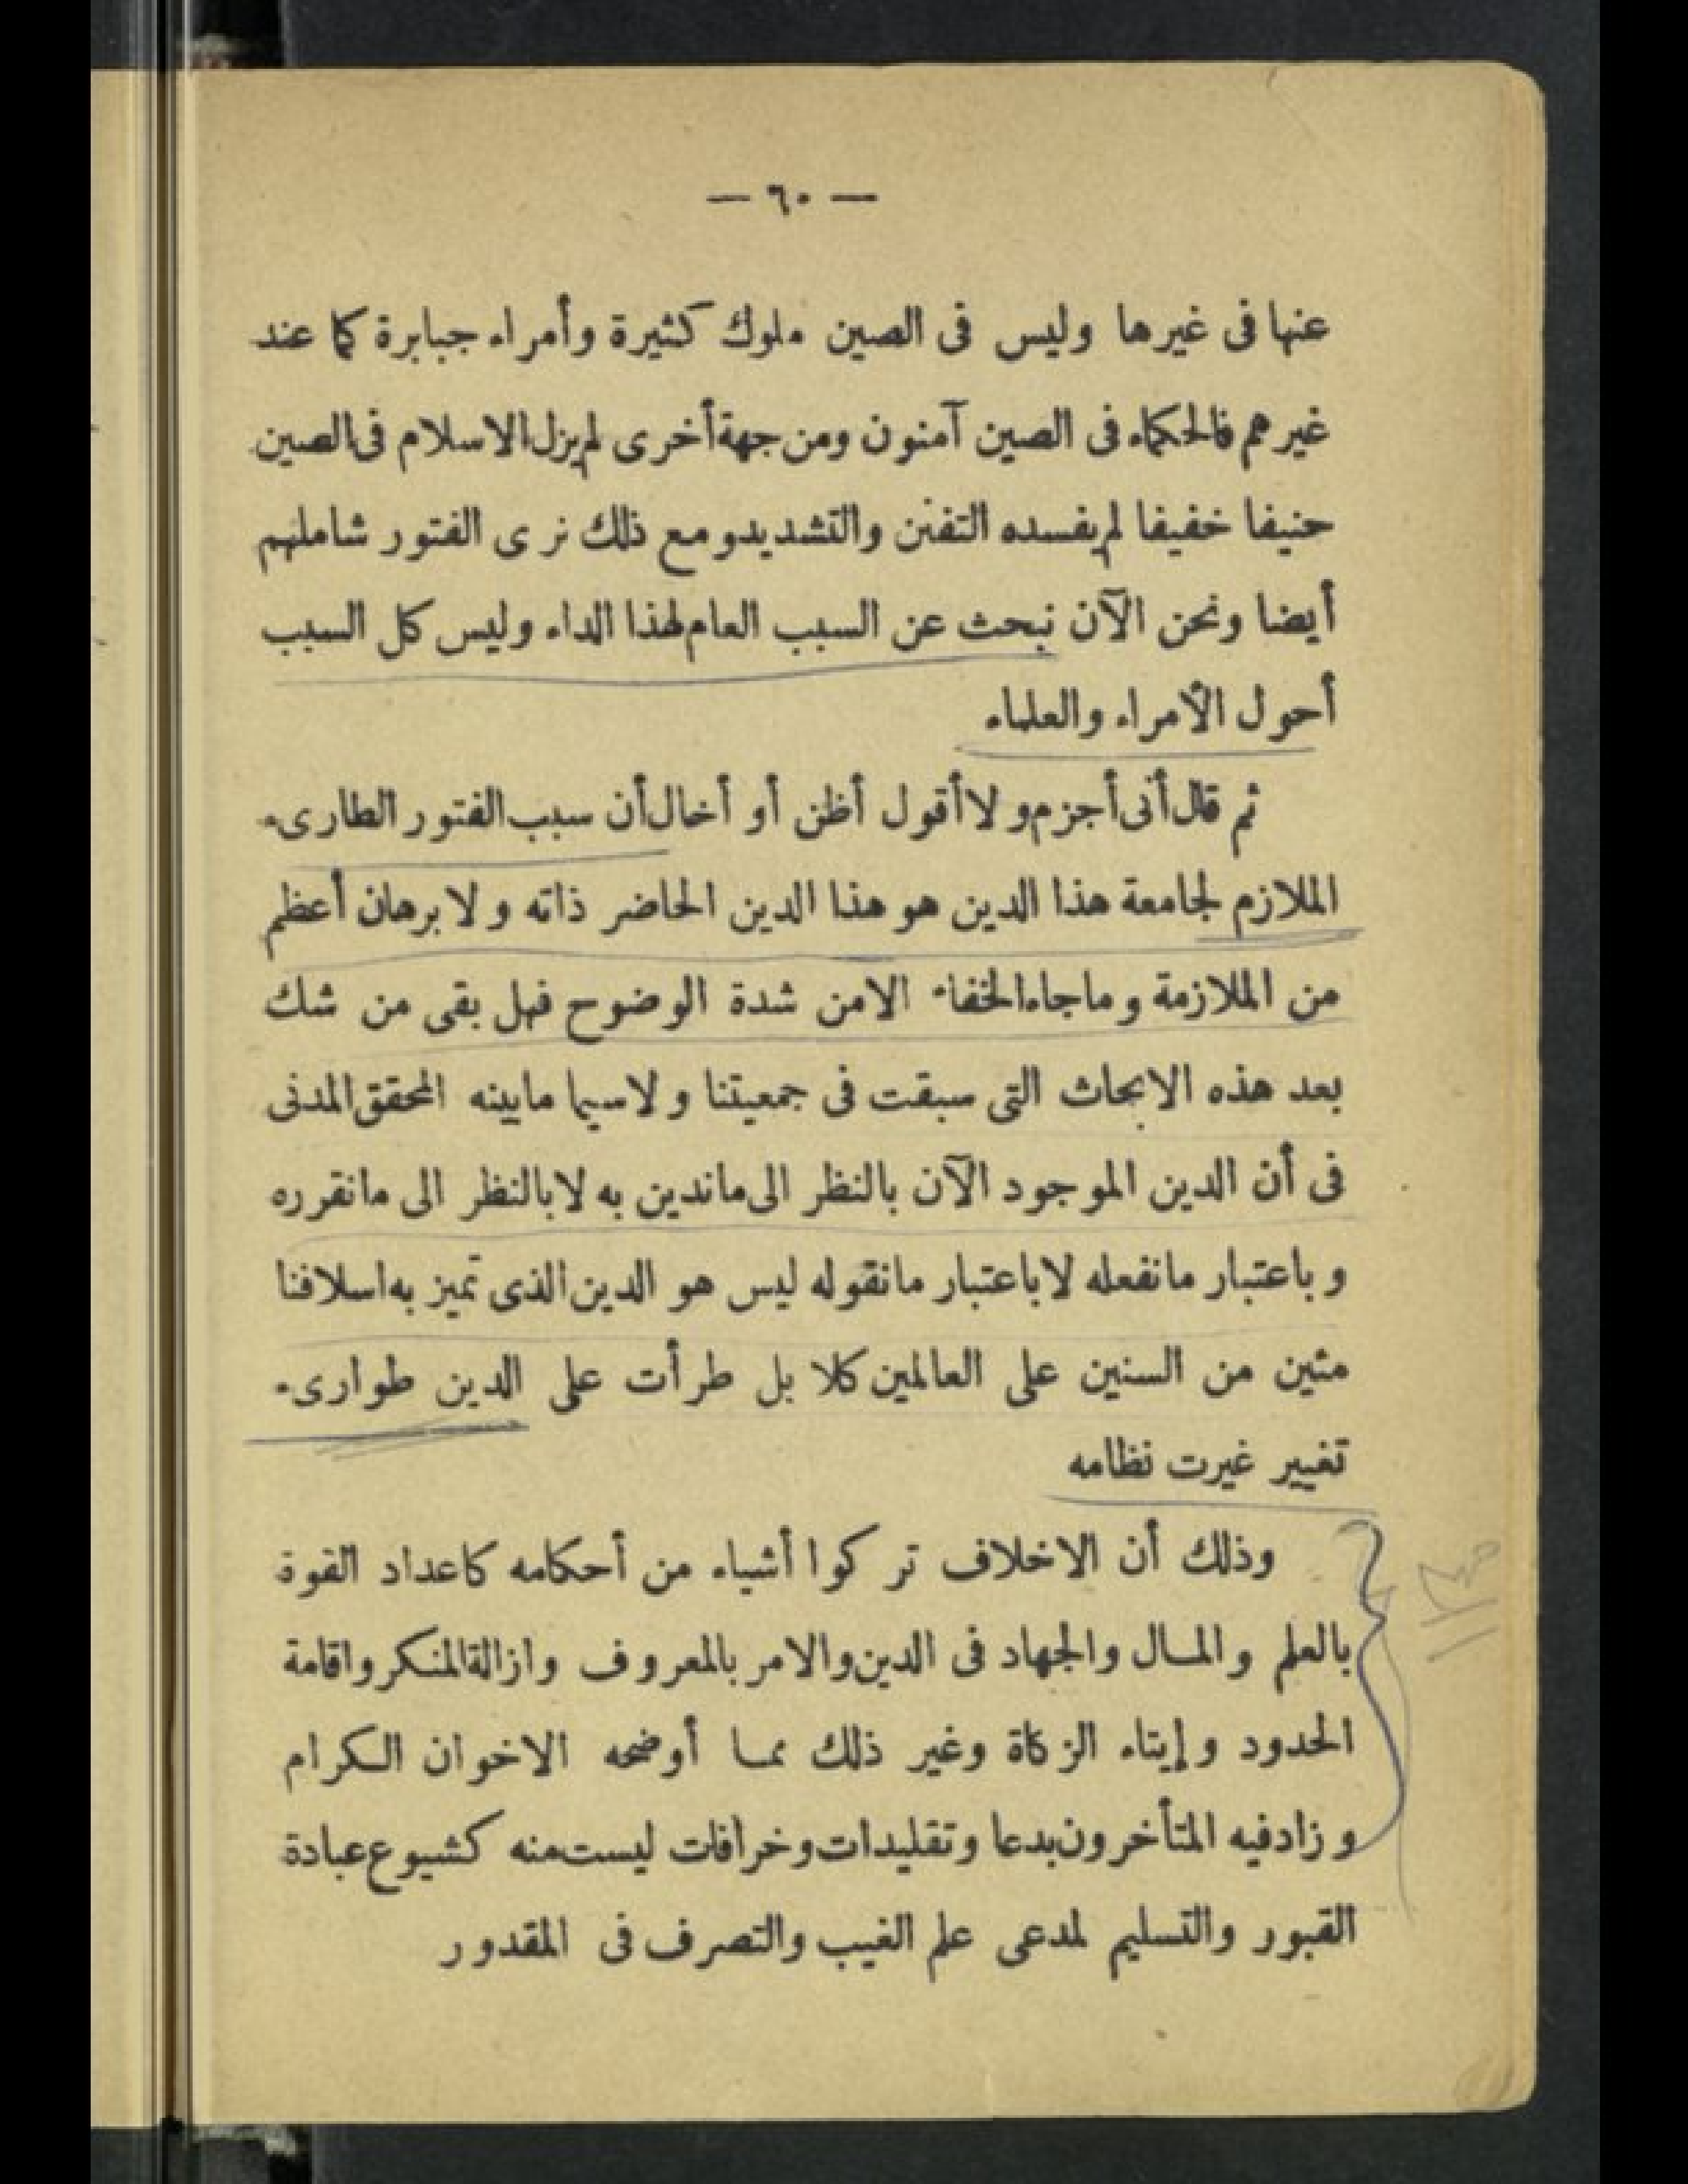 — ٦٠ —
عنها فى غيرها وليس فى الصين ملوك كثيرة وأمراء جبابرة كما عند
غيرهم فالحكماء فى الصين آمنون ومن جهة أخرى لم يزل الاسلام فى الصين
حنيفا خفيفا لم يفسده التفنن والتشديد ومع ذلك نرى الفتور شاملهم
أيضا ونحن الآن نبحث عن السبب العام لهذا الداء وليس كل السبب
أحول الأمراء والعلماء
ثم قال أنى أجزم ولا أقول أظن أو أخال أن سبب الفتور الطارىء
الملازم لجامعة هذا الدين هو هذا الدين الحاضر ذاته ولا برهان أعظم
من الملازمة وما جاء الخفاء الا من شدة الوضوح فهل بقى من شك
بعد هذه الابحاث التى سبقت فى جمعيتنا ولا سيما ما بينه المحقق المدنى
فى أن الدين الموجود الآن بالنظر الى ما ندين به لا بالنظر الى ما نقرره
وباعتبار ما نفعله لا باعتبار ما نقوله ليس هو الدين الذى تميز به اسلافنا
مئين من السنين على العالمين كلا بل طرأت على الدين طوارىء
تغيير غيرت نظامه
وذلك أن الاخلاف تركوا أشياء من أحكامه كاعداد القوة
بالعلم والمال والجهاد فى الدين والامر بالمعروف وازالة المنكر واقامة
الحدود وإيتاء الزكاة وغير ذلك مما أوضحه الاخوان الكرام
وزاد فيه المتأخرون بدعا وتقليدات وخرافات ليست منه كشيوع عبادة
القبور والتسليم لمدعى علم الغيب والتصرف فى المقدور